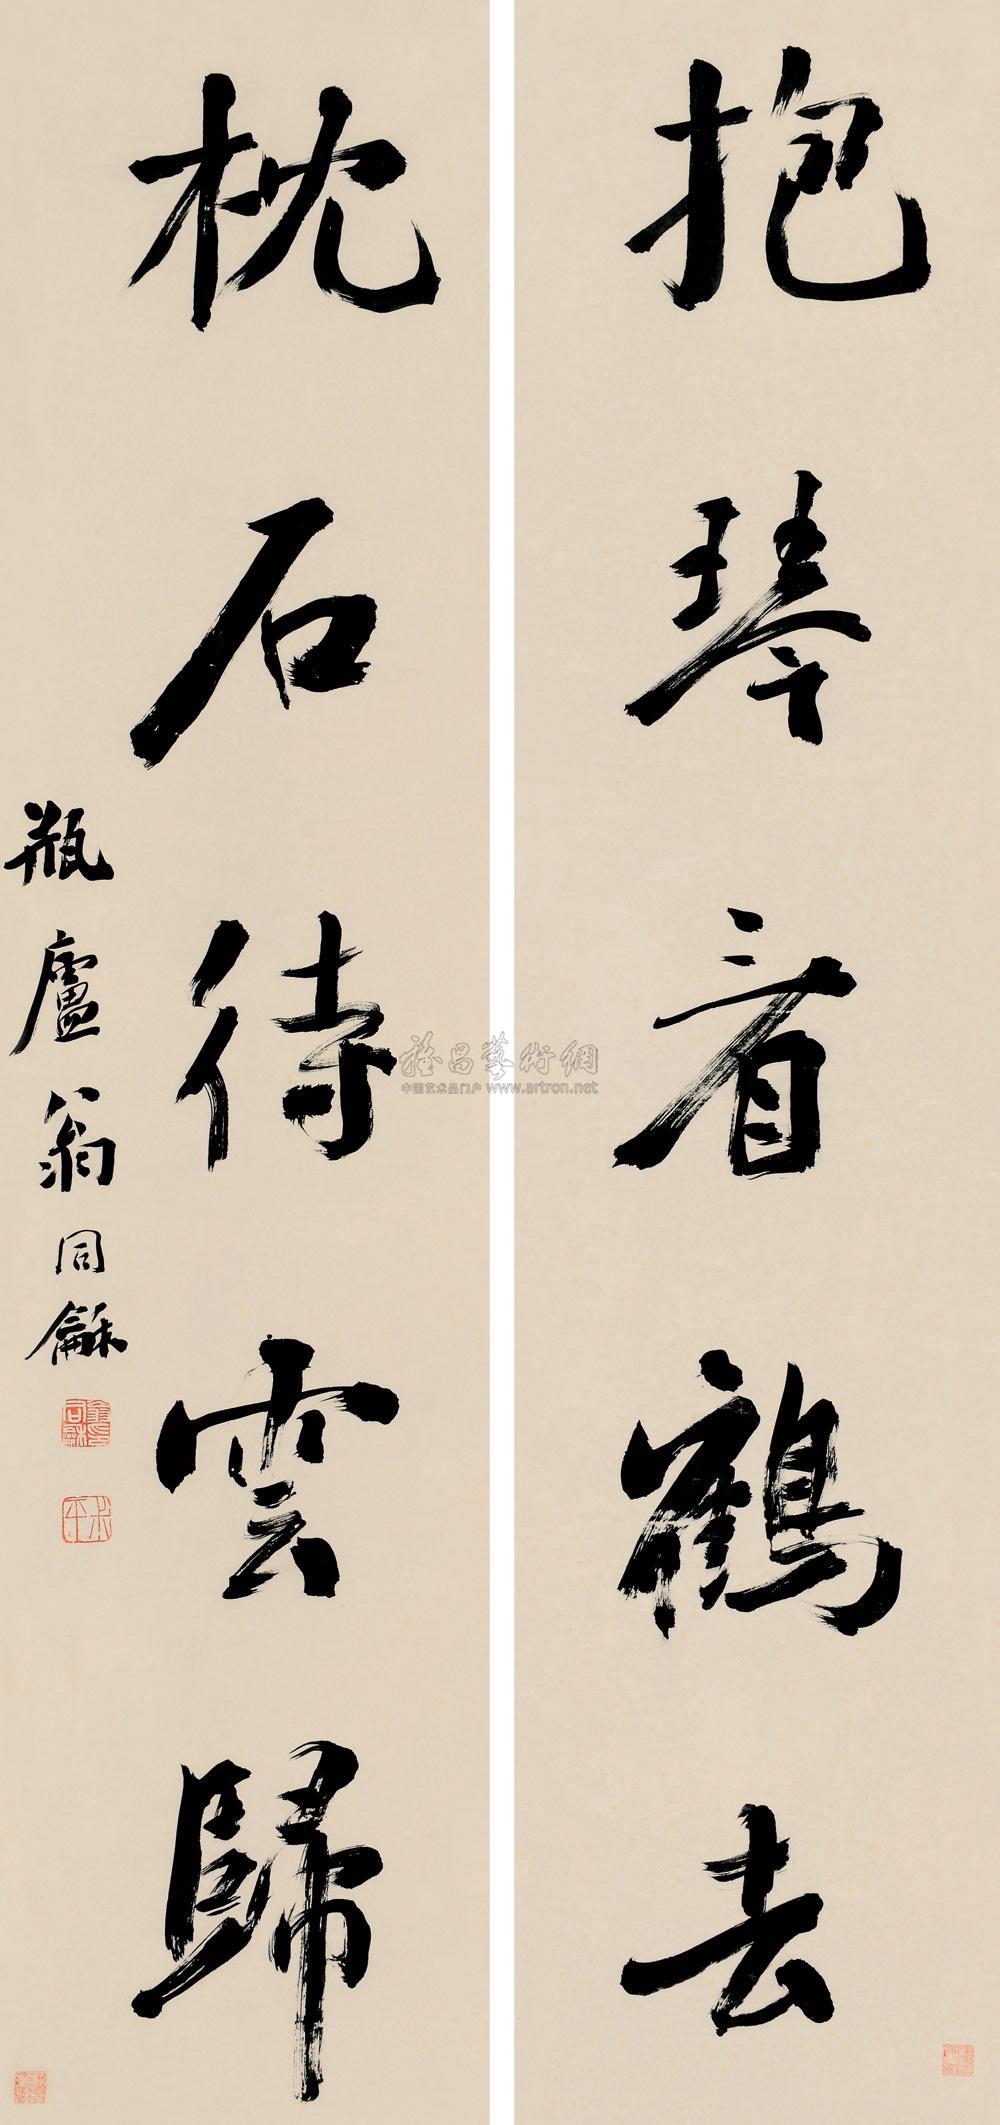 抱琴看鶴去
枕石待雲歸
瓶廬翁同龢
雅昌藝術網
中国艺术品门户 www.artron.net